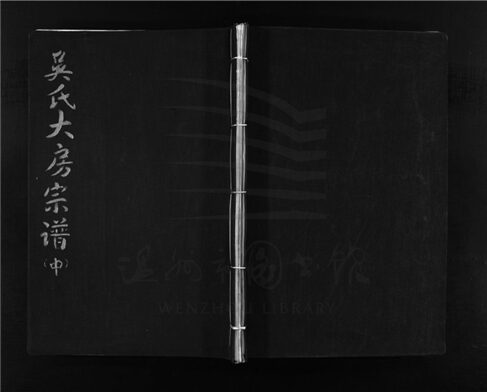 吴氏大房宗谱
(中)
温州市图书馆
WENZHOU LIBRARY